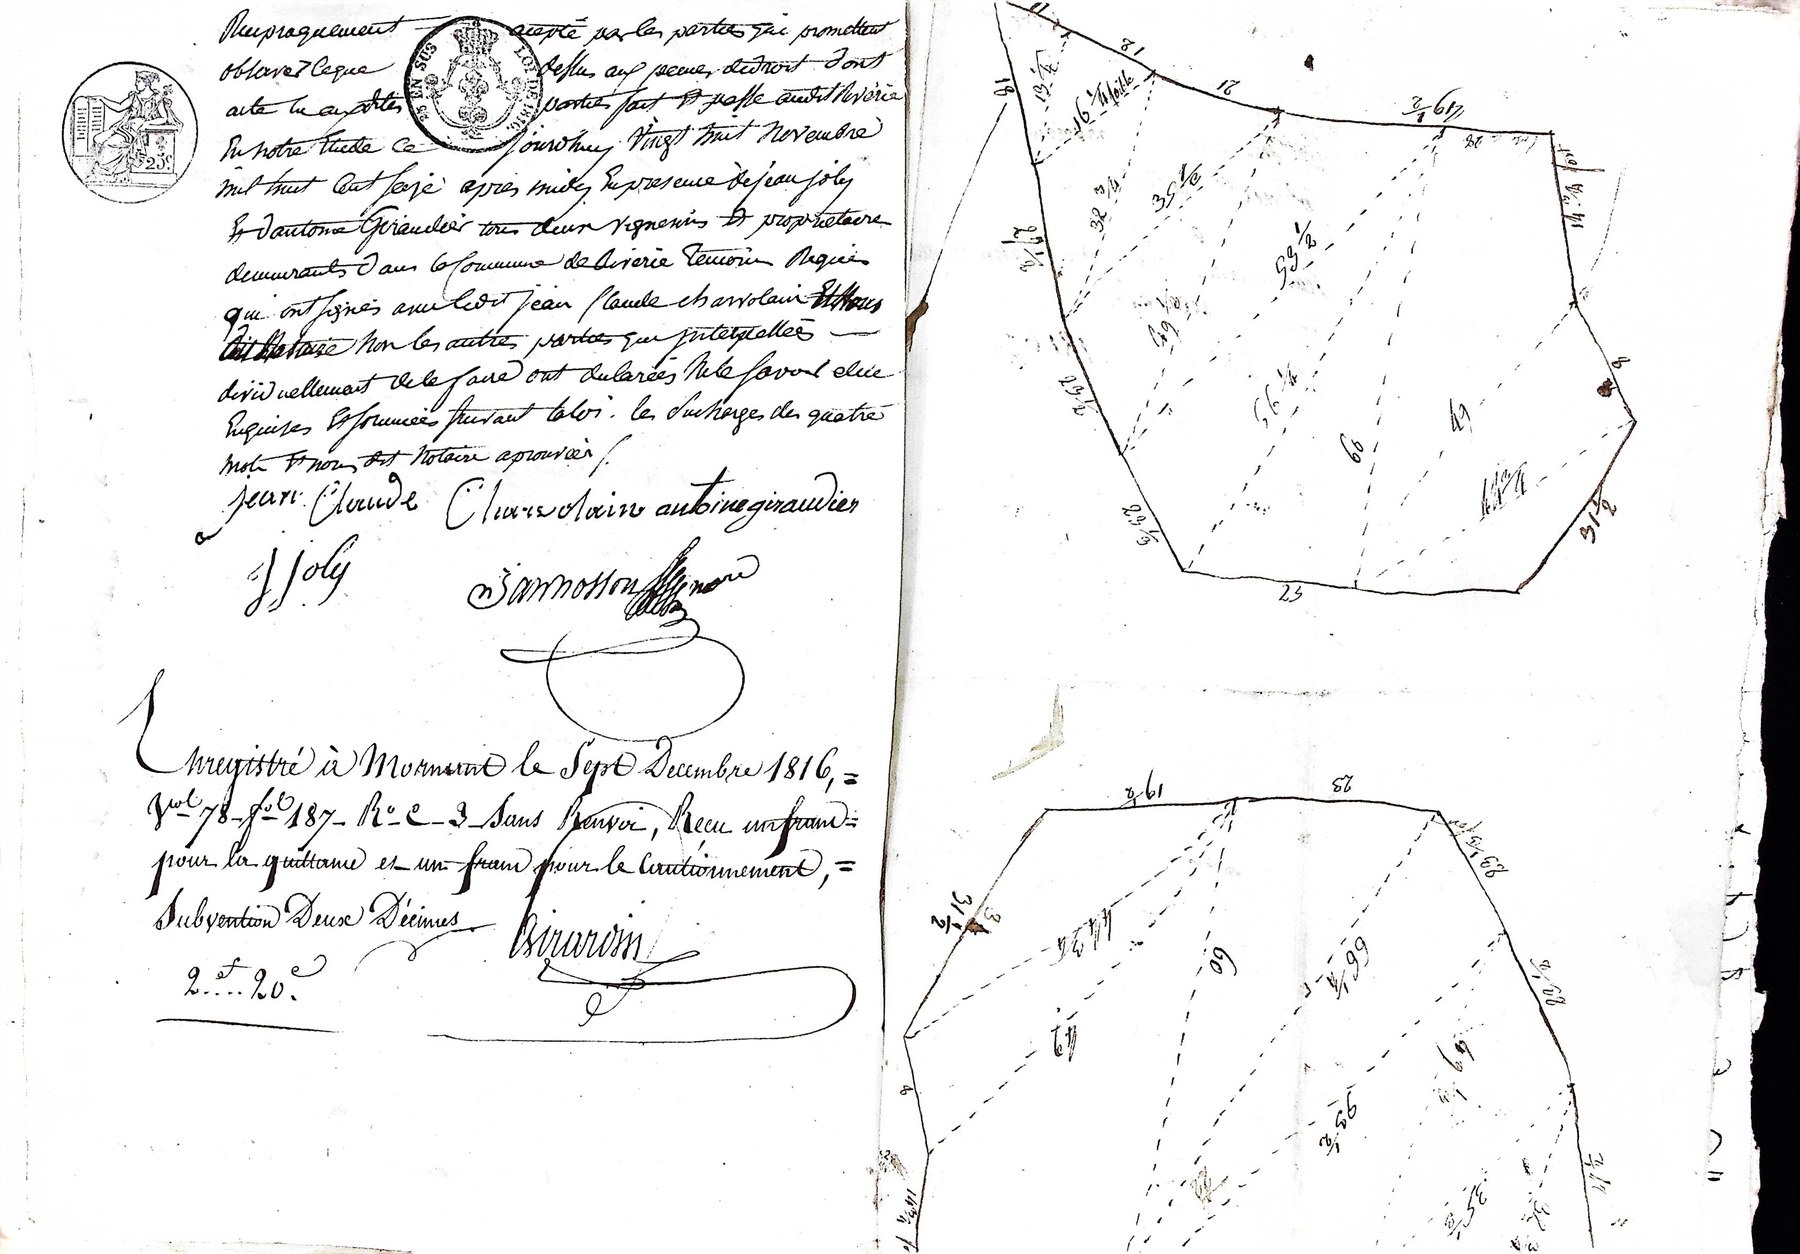 Reciproquement accepté par les parties qui promettent
observer ce que dessus aux peines de droit dont
acte lu aux dites parties fait et passé audit Riverie
En notre Etude ce jourdhuy Vingt huit Novembre
mil huit Cent seize apres midy En presence de jean joly
Et d'antoine Giraudier tous deux vignerons et proprietaire
demeurants dans la Commune de Riverie Temoins Requis
qui ont signés avec ledit jean Claude charvolain Et Nous
dit Notaire Non les autres parties qui interpellées
dividuellement de le faire ont declarées Ne le savoir de ce
Enquises Et sommées suivant la loi. les Surcharges des quatre
mots Et nous dit Notaire aprouvées
jean Claude Charvolain antoine giraudier
J Joly
Enregistré à Mornant le Sept Decembre 1816, =
Vol 78 fol 187 Ro C 3 Sans Renvoi, Reçu un franc =
pour la quittance et un franc pour le Cautionnement, =
Subvention Deux Décimes
2 et 20 c
Girardin
25 EN SUS
LOI DE 1816
25c
11
18
13 1/2
16 1/4 faible
21
49 1/2
28
32 3/4
35 1/2
53 1/2
56 1/4
60
49
44 3/4
31 1/2
9
23
19 1/2
23
23 1/3
31 1/2
44 3/4
49
60
66 1/4
53 1/2
35 1/2
9
14 3/4